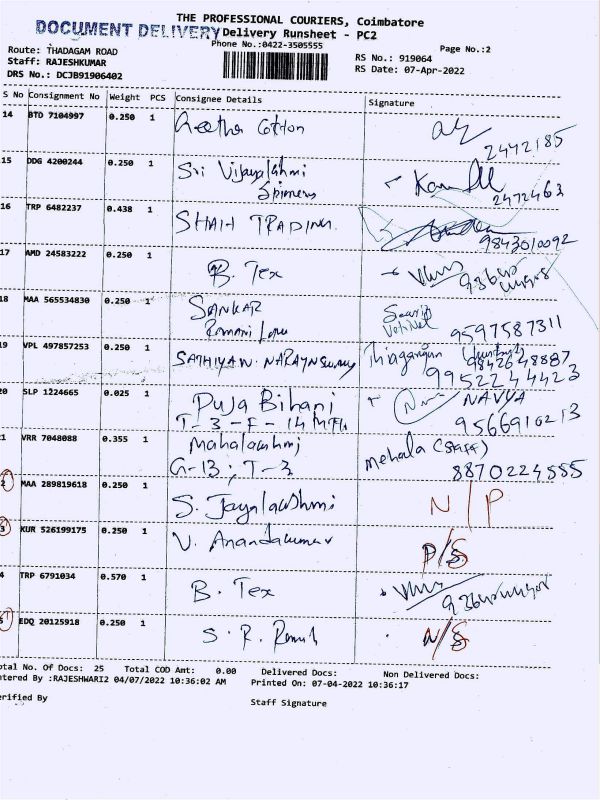 THE PROFESSIONAL COURIERS, Coimbatore
DOCUMENT DELIVERY Delivery Runsheet - PC2
Phone No.:0422-3505555 Page No.:2
Route: THADAGAM ROAD RS No.: 919064
Staff: RAJESHKUMAR RS Date: 07-Apr-2022
DRS No.: DCJB91906402
S No Consignment No Weight PCS Consignee Details Signature
14 BTD 7104997 0.250 1 Geetha Cotton
2442185
15 DDG 4200244 0.250 1 Sri Vijayalakshmi
Spinners 2472463
16 TRP 6482237 0.438 1 SHAH TRADING
9843010092
17 AMD 24583222 0.250 1 B. Tex
18 MAA 565534830 0.250 1 SANKAR
9597587311
19 VPL 497857253 0.250 1 SATHIYAN NARAYNSwamy Thiagarajan
9842648887
9952244423
20 SLP 1224665 0.025 1 Puja Bihani NAVYA
T-3-F-14 9566910213
21 VRR 7048088 0.355 1 Mahalakshmi Mehala (Staff)
G-13; T-3 8870224555
2 MAA 289819618 0.250 1 S. Jayalakshmi N/P
3 KUR 526199175 0.250 1 V. Anandakumar P/S
4 TRP 6791034 0.570 1 B. Tex
EDQ 20125918 0.250 1 S. R. N/S
otal No. Of Docs: 25 Total COD Amt: 0.00 Delivered Docs: Non Delivered Docs:
ntered By :RAJESHWARI2 04/07/2022 10:36:02 AM Printed On: 07-04-2022 10:36:17
erified By Staff Signature